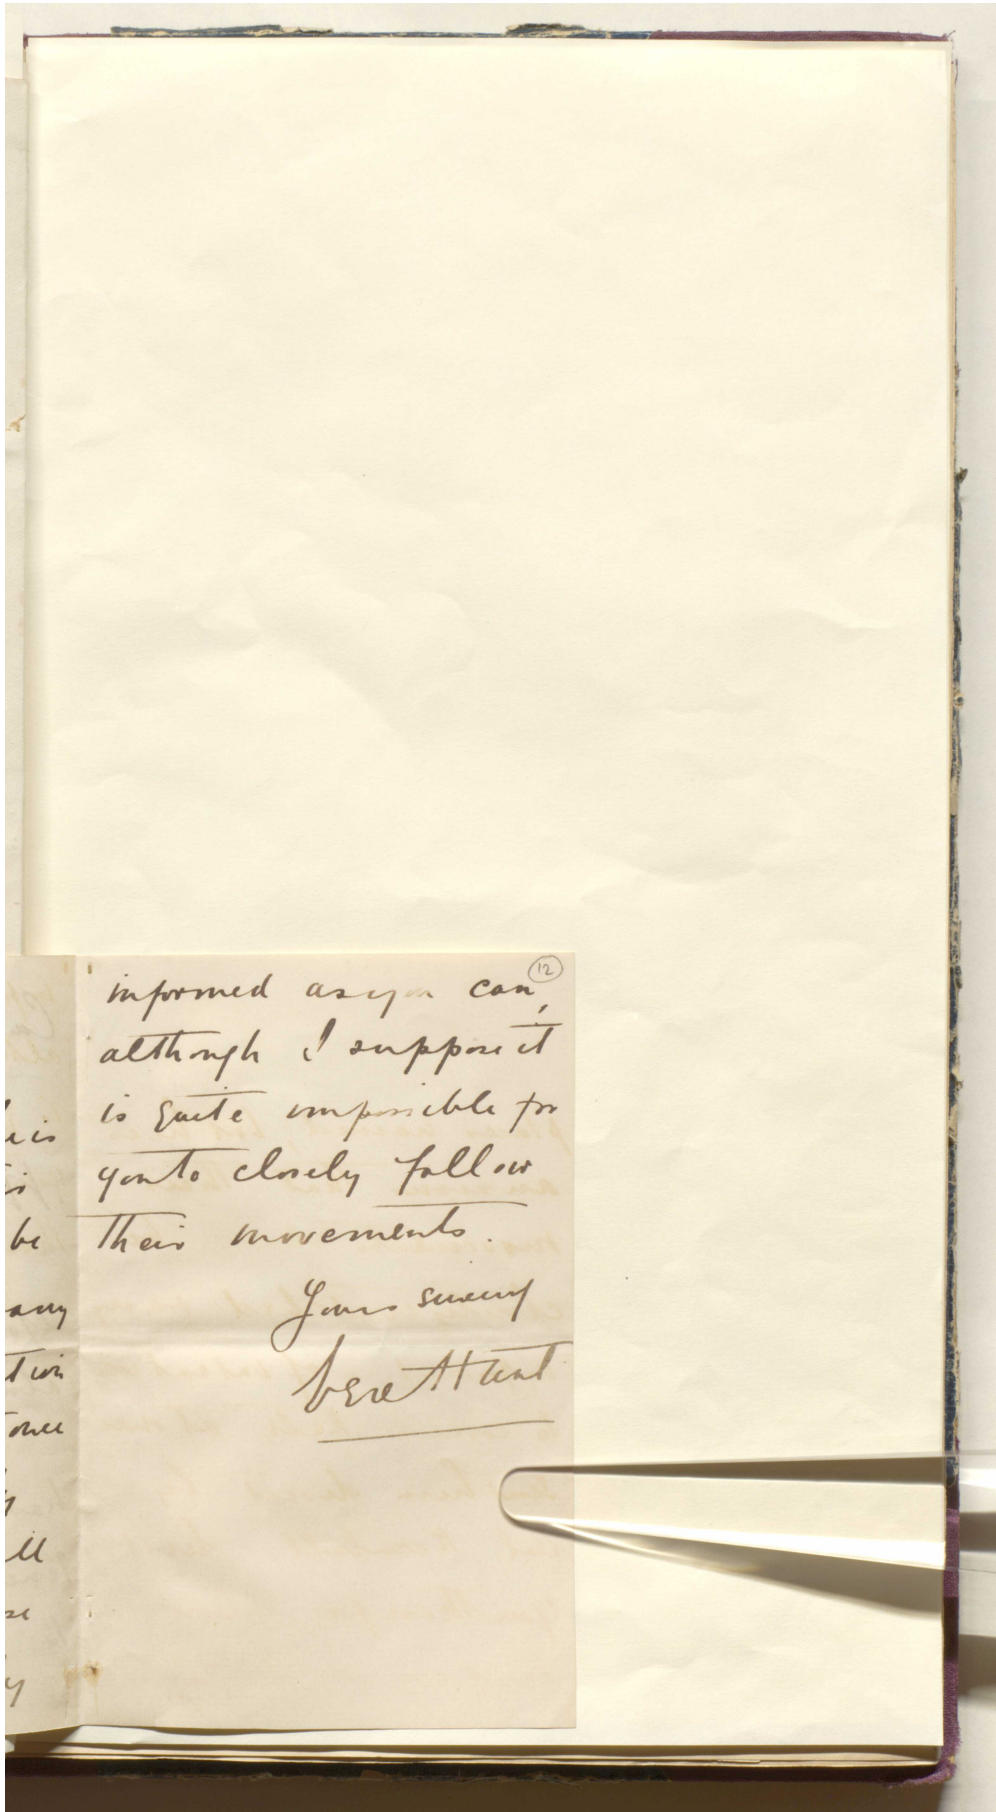 12
informed as you can,
although I suppose it
is quite impossible for
you to closely follow
their movements.
Yours sincerely
Vere Hunt
is
be
any
tion
once
ll
se
y